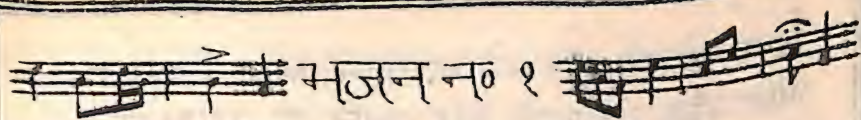 भजन न० १